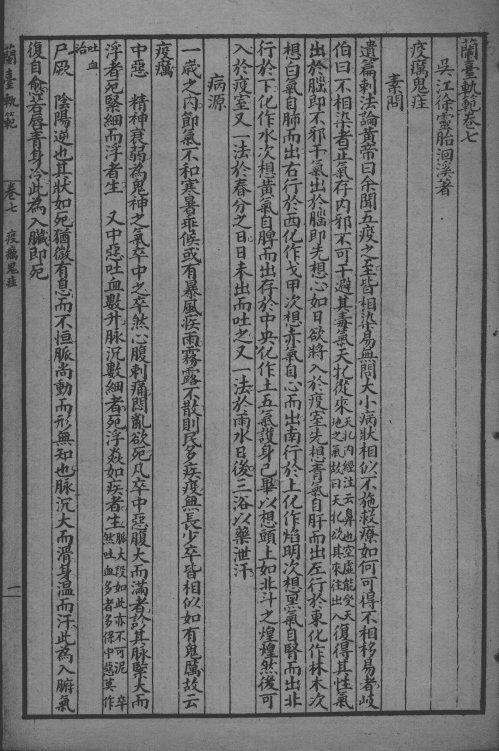 蘭臺軌範卷七
吳江徐靈胎洄溪著
疫癘鬼疰
素問
遺篇刺法論黃帝曰余聞五疫之至皆相染易無問大小病狀相似不施救療如何可得不相移易者岐
伯曰不相染者正氣存內邪不可干避其毒氣天牝從來天牝內經注云鼻也空虛能受天地之氣故曰天牝欲其來往出入復得其往氣
出於腦即不邪干氣出於腦即先想心如日欲將入於疫室先想青氣自肝而出左行於東化作林木次
想白氣自肺而出右行於西化作戈甲次想赤氣自心而出南行於上化作焰明次想黑氣自腎而出北
行於下化作水次想黃氣自脾而出存於中央化作土五氣護身之畢以想頭上如北斗之煌煌然後可
入於疫室又一法於春分之日日未出而吐之又一法於雨水日後三浴以藥泄汗
病源
一歲之內節氣不和寒暑乖候或有暴風疾雨霧露不散則民多疾疫無長少率皆相似如有鬼厲故云
疫癘
中惡 精神衰弱為鬼神之氣卒中之卒然心腹刺痛悶亂欲死凡卒中惡腹大而滿者診其脉緊大而
浮者死緊細而浮者生 又中惡吐血數升脉沉數細者死浮焱如疾者生脉大段如此亦不可泥 卒然吐血多者多得中惡莫作
吐血治
尸厥 陰陽逆也其狀如死猶微有息而不恒脈尚動而形無知也脉沉大而滑身溫而汗此為入腑氣
復自愈若唇青身冷此為入臟即死
蘭臺軌範 卷七 疫癘鬼疰 一